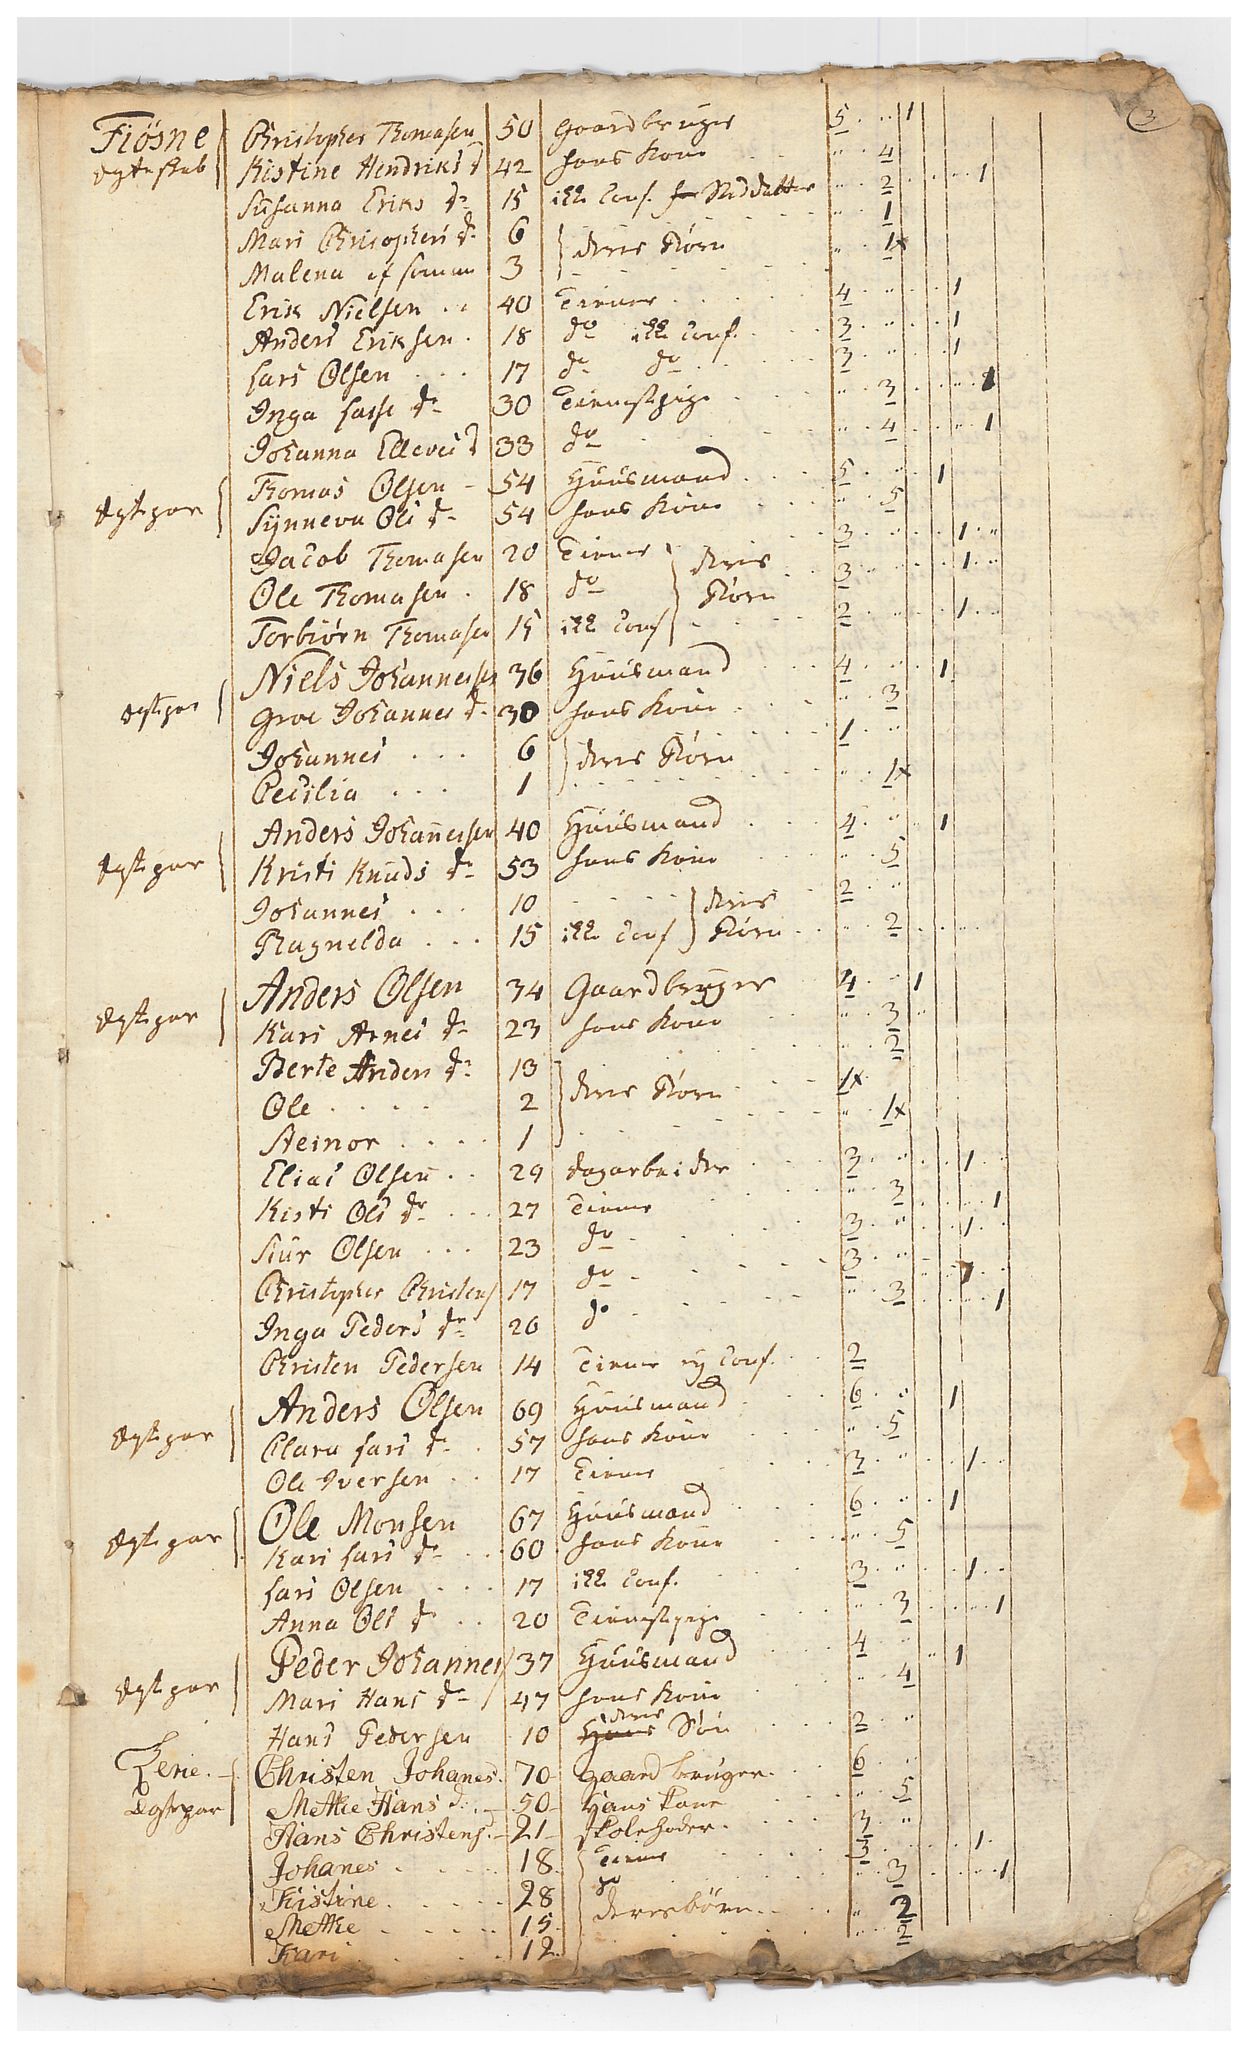 3
Fiösne Christopher Thomasen 50 Gaardbruger 5 1
Egteskab Kistine Hendriksd 42 hans Kone 4
Susanna Eriks dr 15 ikk Conf. Steddatter 2 1
Mari Christophers dr 6 deres Börn 1
Malena 3 1x
Erik Nielsen 40 Tiener 4 1
Anders Eriksen 18 do ikk Conf. 3 1
Lars Olsen 17 do do 3 1
Inga Lasse dr 30 Tienestpige 3 1
Johanna Ellevesd 33 do 4 1
Thomas Olsen 54 Huusmand 5 1
Egtepar Synneva Ols dr 54 hans Kone 5
Jacob Thomasen 20 Tiener deres 3 1
Ole Thomasen 18 do Börn 3 1
Torbiörn Thomasen 15 ikk Conf 2 1
Niels Johannesen 36 Huusmand 4 1
Egtepar Groe Johannes dr 30 hans Kone 3
Johannes 6 deres Börn 1
Cecilia 1 1x
Anders Johannesen 40 Huusmand 4 1
Egtepar Kristi Knuds dr 53 hans Kone 5
Johannes 10 deres 2
Ragnelda 15 ikk Conf Börn 2
Anders Olsen 34 Gaardbruger 4 1
Egtepar Kari Arnes dr 23 hans Kone 3
Berte Anders dr 13 2
Ole 2 deres Börn 1x
Steinor 1 1x
Elias Olsen 29 dagarbeider 3 1
Kisti Ols dr 27 Tiener 3 1
Siur Olsen 23 do 3 1
Christopher Christens 17 do 3 1
Inga Peders dr 20 do 3 1
Christen Pedersen 14 Tiener ej Conf. 2
Anders Olsen 69 Huusmand 6 1
Egtepar Clara Lars dr 57 hans Kone 5
Ole Iversen 17 Tiener 3 1
Ole Monsen 67 Huusmand 6 1
Egtepar Kari Lars dr 60 hans Kone 5
Lars Olsen 17 ikk Conf. 3 1
Anna Ols dr 20 Tienestpige 3 1
Peder Johannes 37 Huusmand 4 1
Egtepar Mari Hans dr 47 hans Kone 4
Hans Pedersen 10 deres Sön 2
Christen Johanes 70 Gaardbruger 6
Egtepar Mettie Hans d. 50 Hans kone 5
Hans Christens 21 skoleholder 3
Johanes 18 Tiener 3 1
Kistine 28 do 3 1
Mettie 15 deres börn 2
Kari 12 2